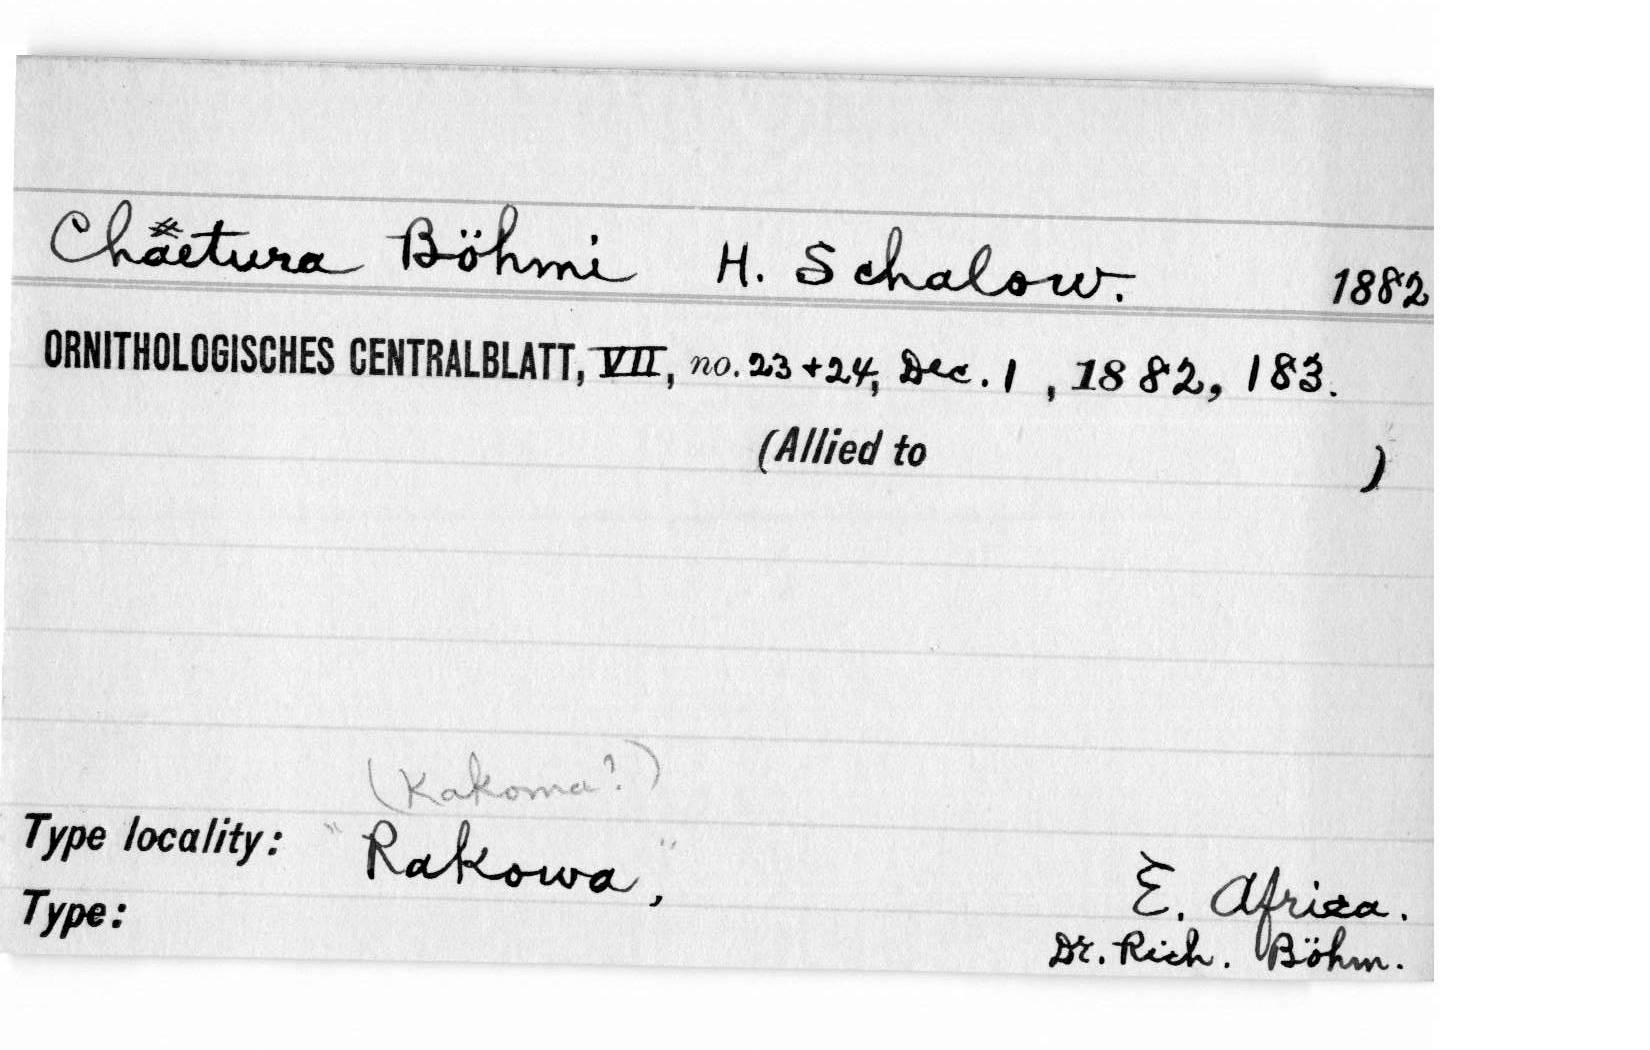 Chaetura Böhmi H. Schalow. 1882
ORNITHOLOGISCHES CENTRALBLATT, VII, no. 23+24, Dec. 1, 1882, 183.
(Allied to )
(Kakoma?)
Type locality: "Rakowa," E. Africa.
Type: Dr. Rich. Böhm.